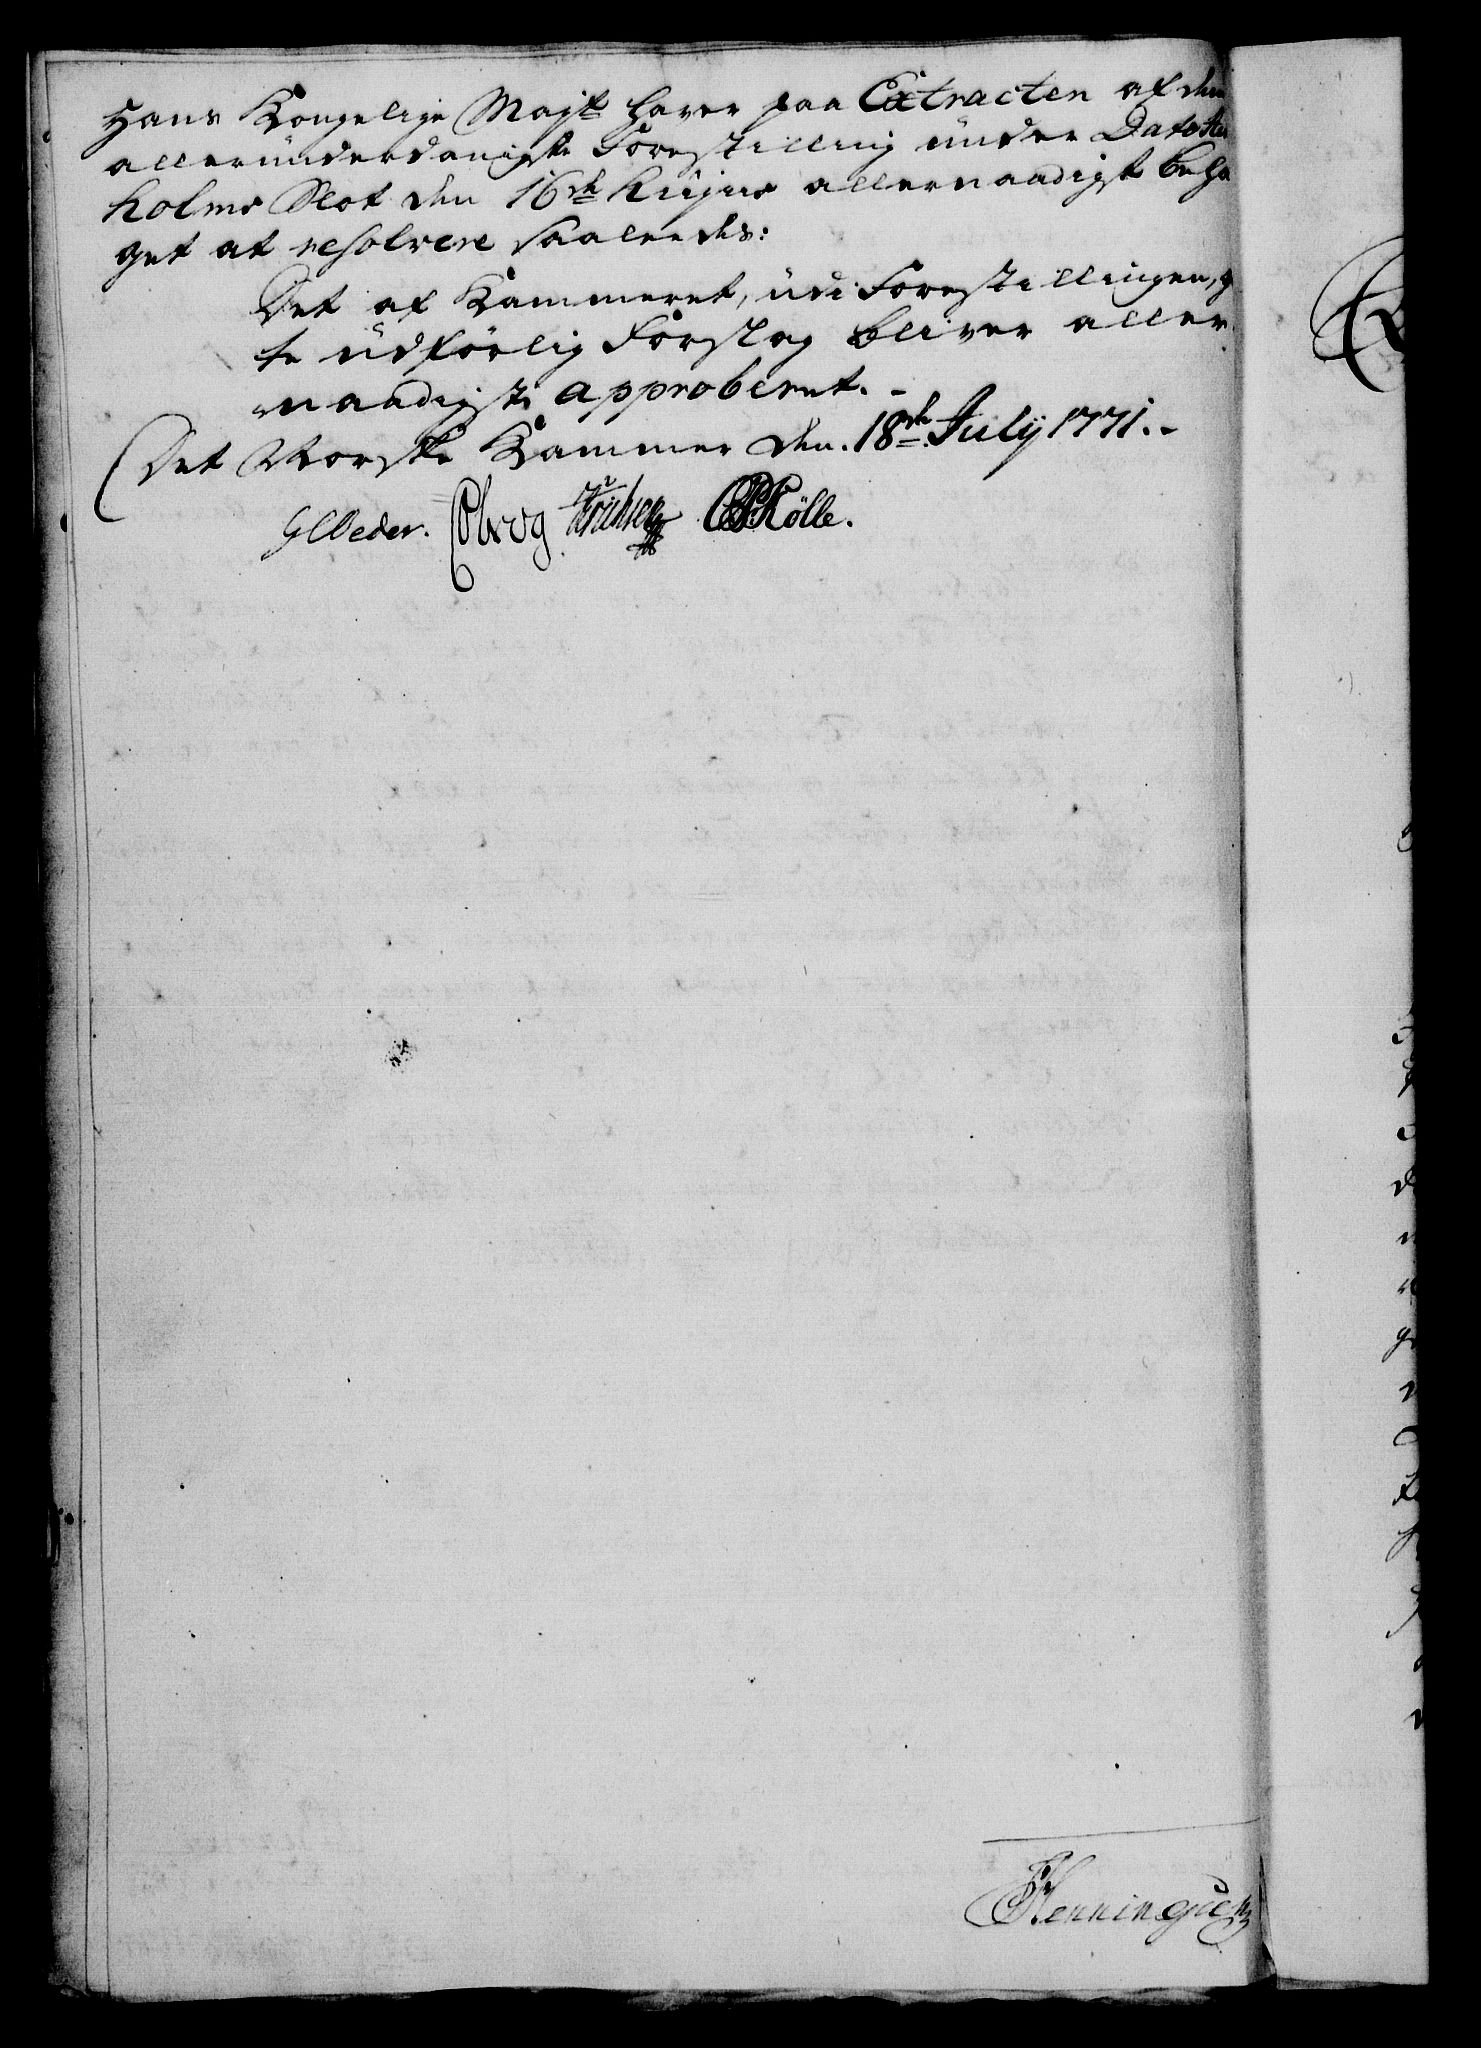 Hans Kongelige Majt haver paa Extracten af den
allerunderdanigste Forestilling under Dato
holms Slot den 16de hujus allernaadigst beha
get at resolvere saaledes:
Det af Kammeret, udi Forestillingen,
te udførlig Forslag bliver aller-
naadigst approberet. -
Det Norske Kammer den. 18de July 1771. -
GCOeder. CPKölle.